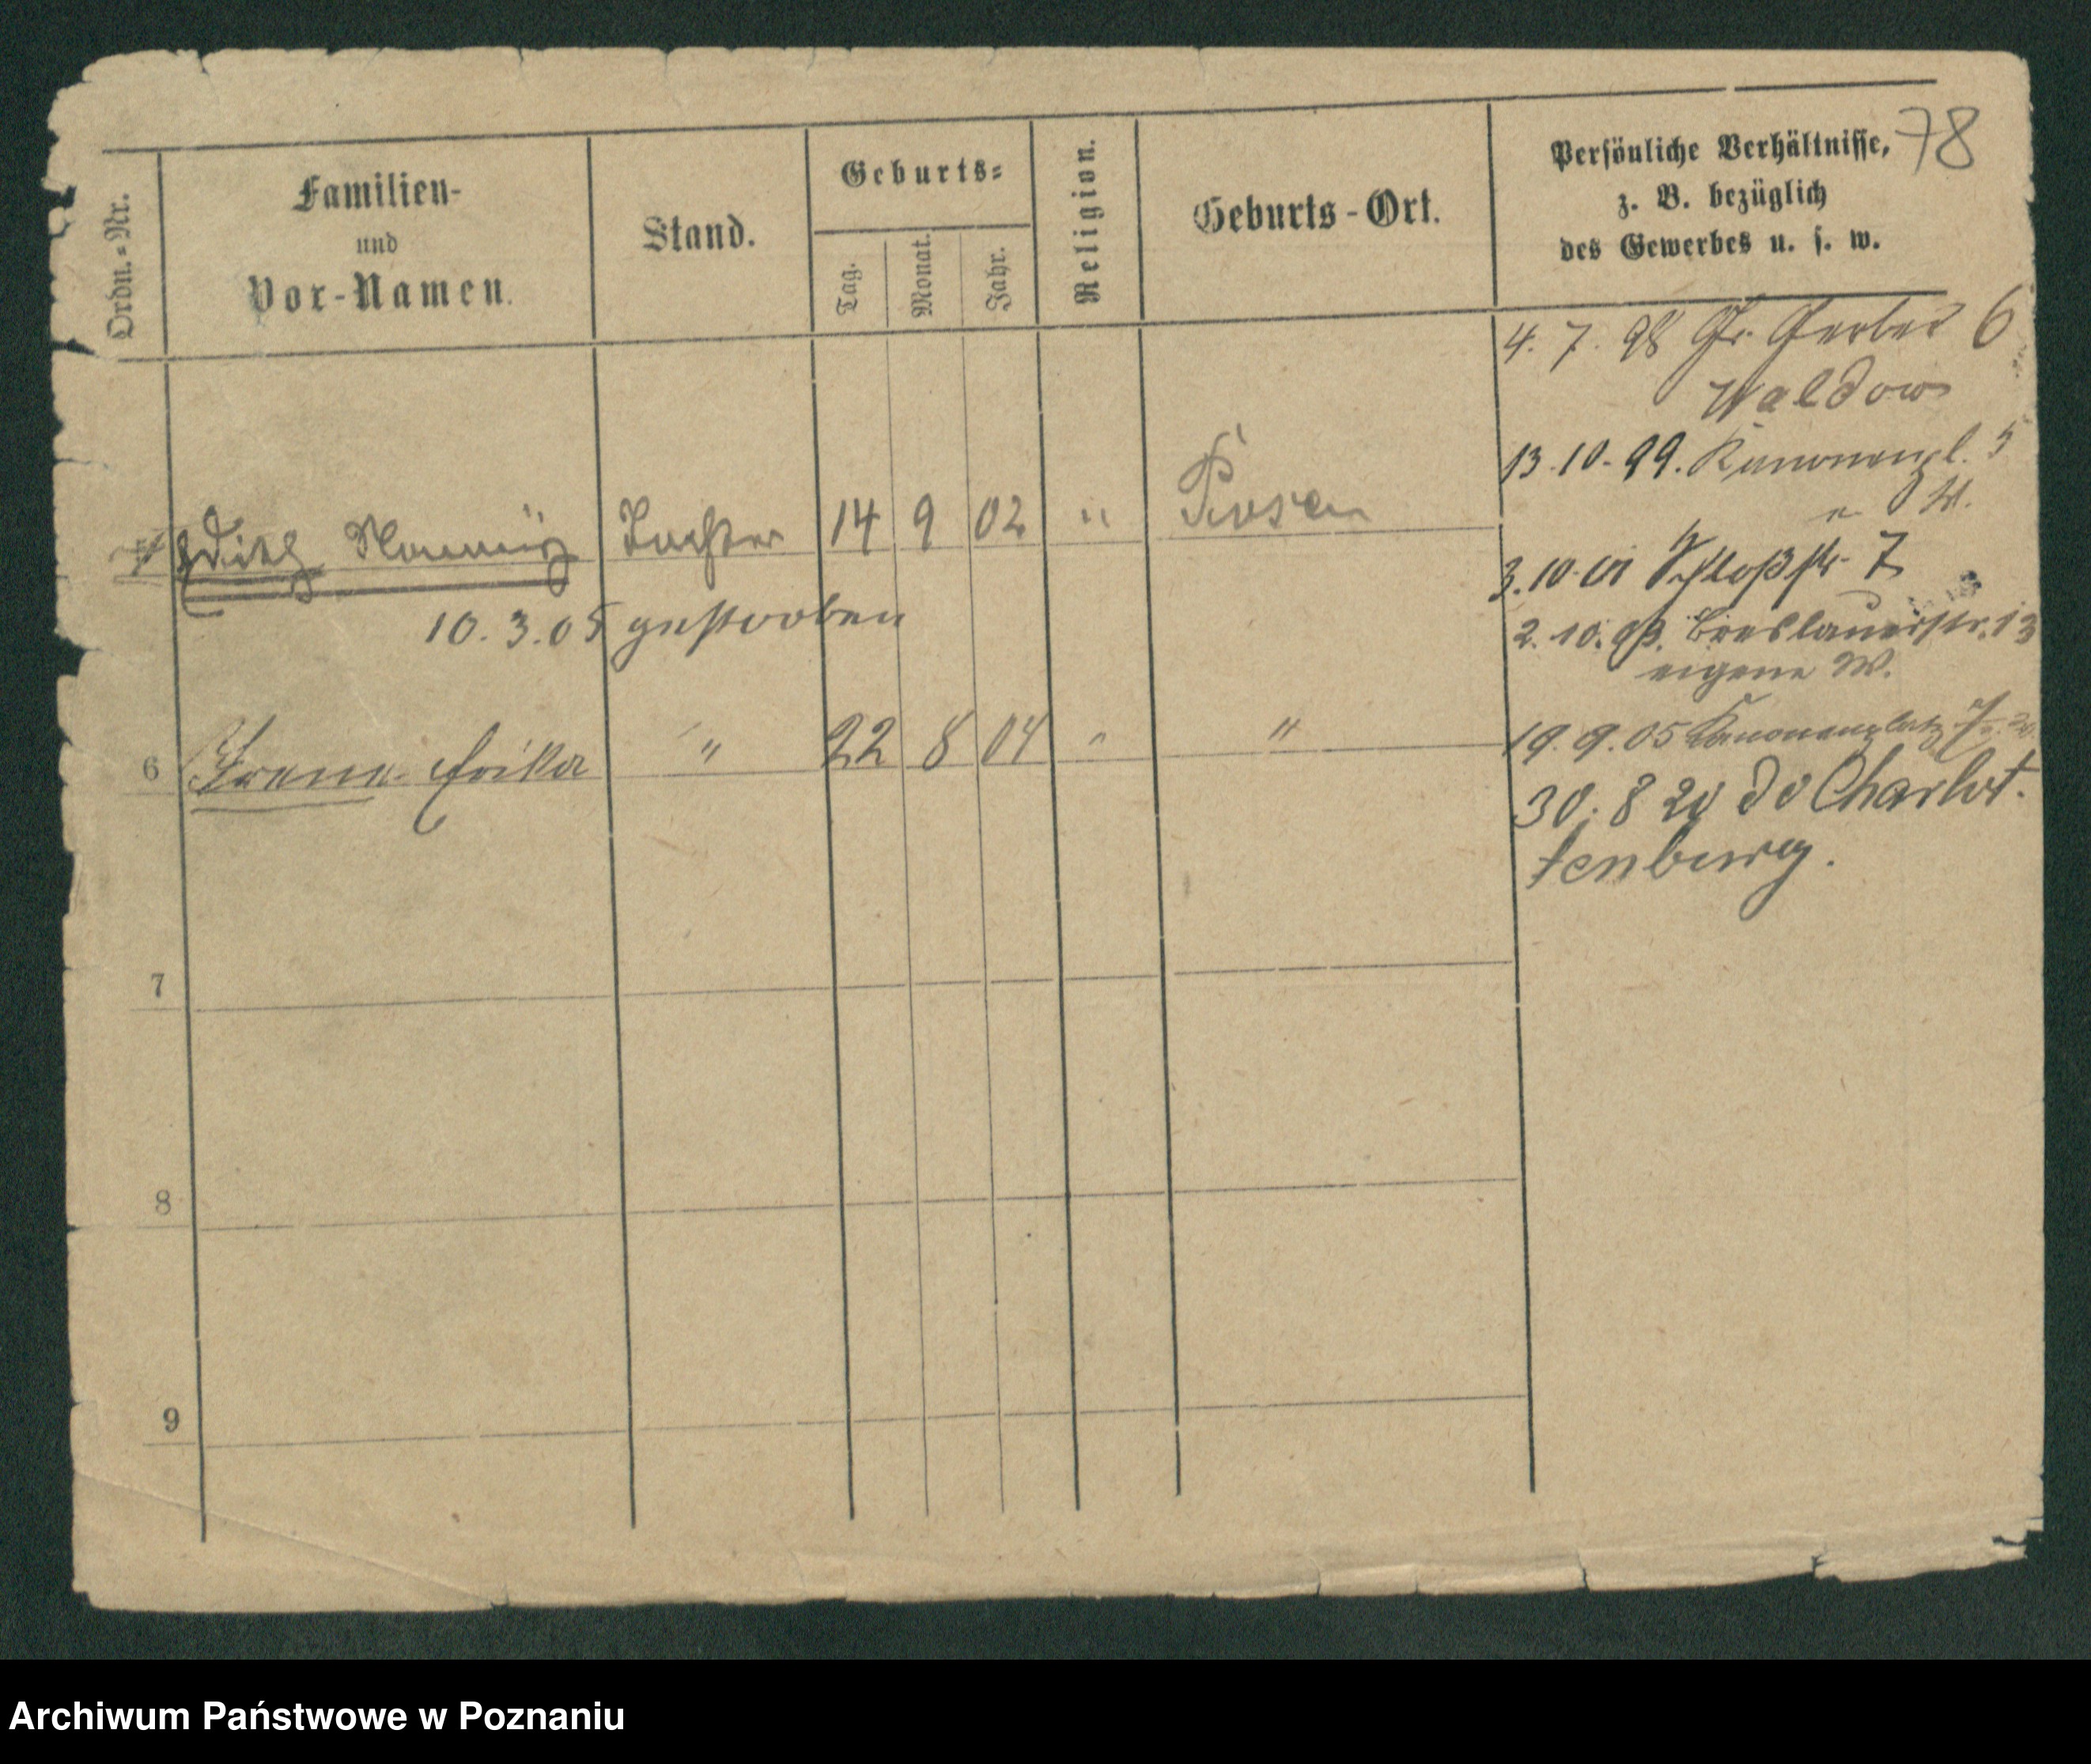 78
Ordn.-Nr.
Familien-
und
Vor-Namen.
Stand.
Geburts-
Tag.
Monat.
Jahr.
Religion.
Geburts-Ort.
Persönliche Verhältnisse,
z. B. bezüglich
des Gewerbes u. s. w.
4. 7. 98 Gr. Gerber 6
Waldow
13. 10. 99. Kanonenpl. 5
Edith Tochter 14 9 02 " Posen
3. 10. 01 Schloßstr. 7
10. 3. 05 gestorben
2. 10. 03. Breslauerstr. 13
eigene W.
6 Irene Erika " 22 8 04 " "
19. 9. 05 Kanonenplatz
30. 8 20 do Charlot.
tenburg.
7
8
9
Archiwum Państwowe w Poznaniu